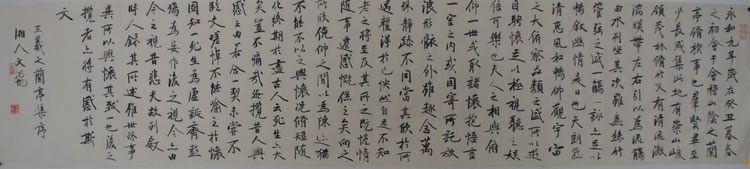 永和九年歲在癸丑暮春
之初會于會稽山陰之蘭
亭脩稧事也羣賢畢至
少長咸集此地有崇山峻
領茂林脩竹又有清流激
湍暎帶左右引以為流觴
曲水列坐其次雖無絲竹
管弦之盛一觴一詠亦足以
暢敘幽情是日也天朗氣
清惠風和暢仰觀宇宙
之大俯察品類之盛所以遊
目騁懷足以極視聽之娛
信可樂也夫人之相與俯
仰一世或取諸懷抱悟言
一室之內或因寄所託放
浪形骸之外雖趣舍萬
殊靜躁不同當其欣於所
遇暫得於己怏然自足不知
老之將至及其所之既惓情
隨事遷感慨係之矣向之
所欣俛仰之間以為陳迹猶
不能不以之興懷況脩短隨
化終期於盡古人云死生亦大
矣豈不痛哉每攬昔人興
感之由若合一契未嘗不
臨文嗟悼不能喻之於懷
固知一死生為虛誕齊彭
殤為妄作後之視今亦由
今之視昔悲夫故列敘
時人錄其所述雖世殊事
異所以興懷其致一也後之
攬者亦將有感於斯
文
王羲之蘭亭集序
湘人文